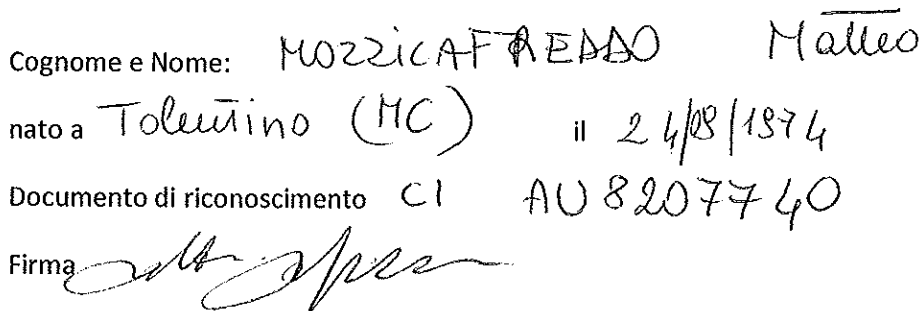 Cognome e Nome: MOZZICAFREDDO Matteo
nato a Tolentino (MC) il 24/09/1974
Documento di riconoscimento CI AU8207740
Firma